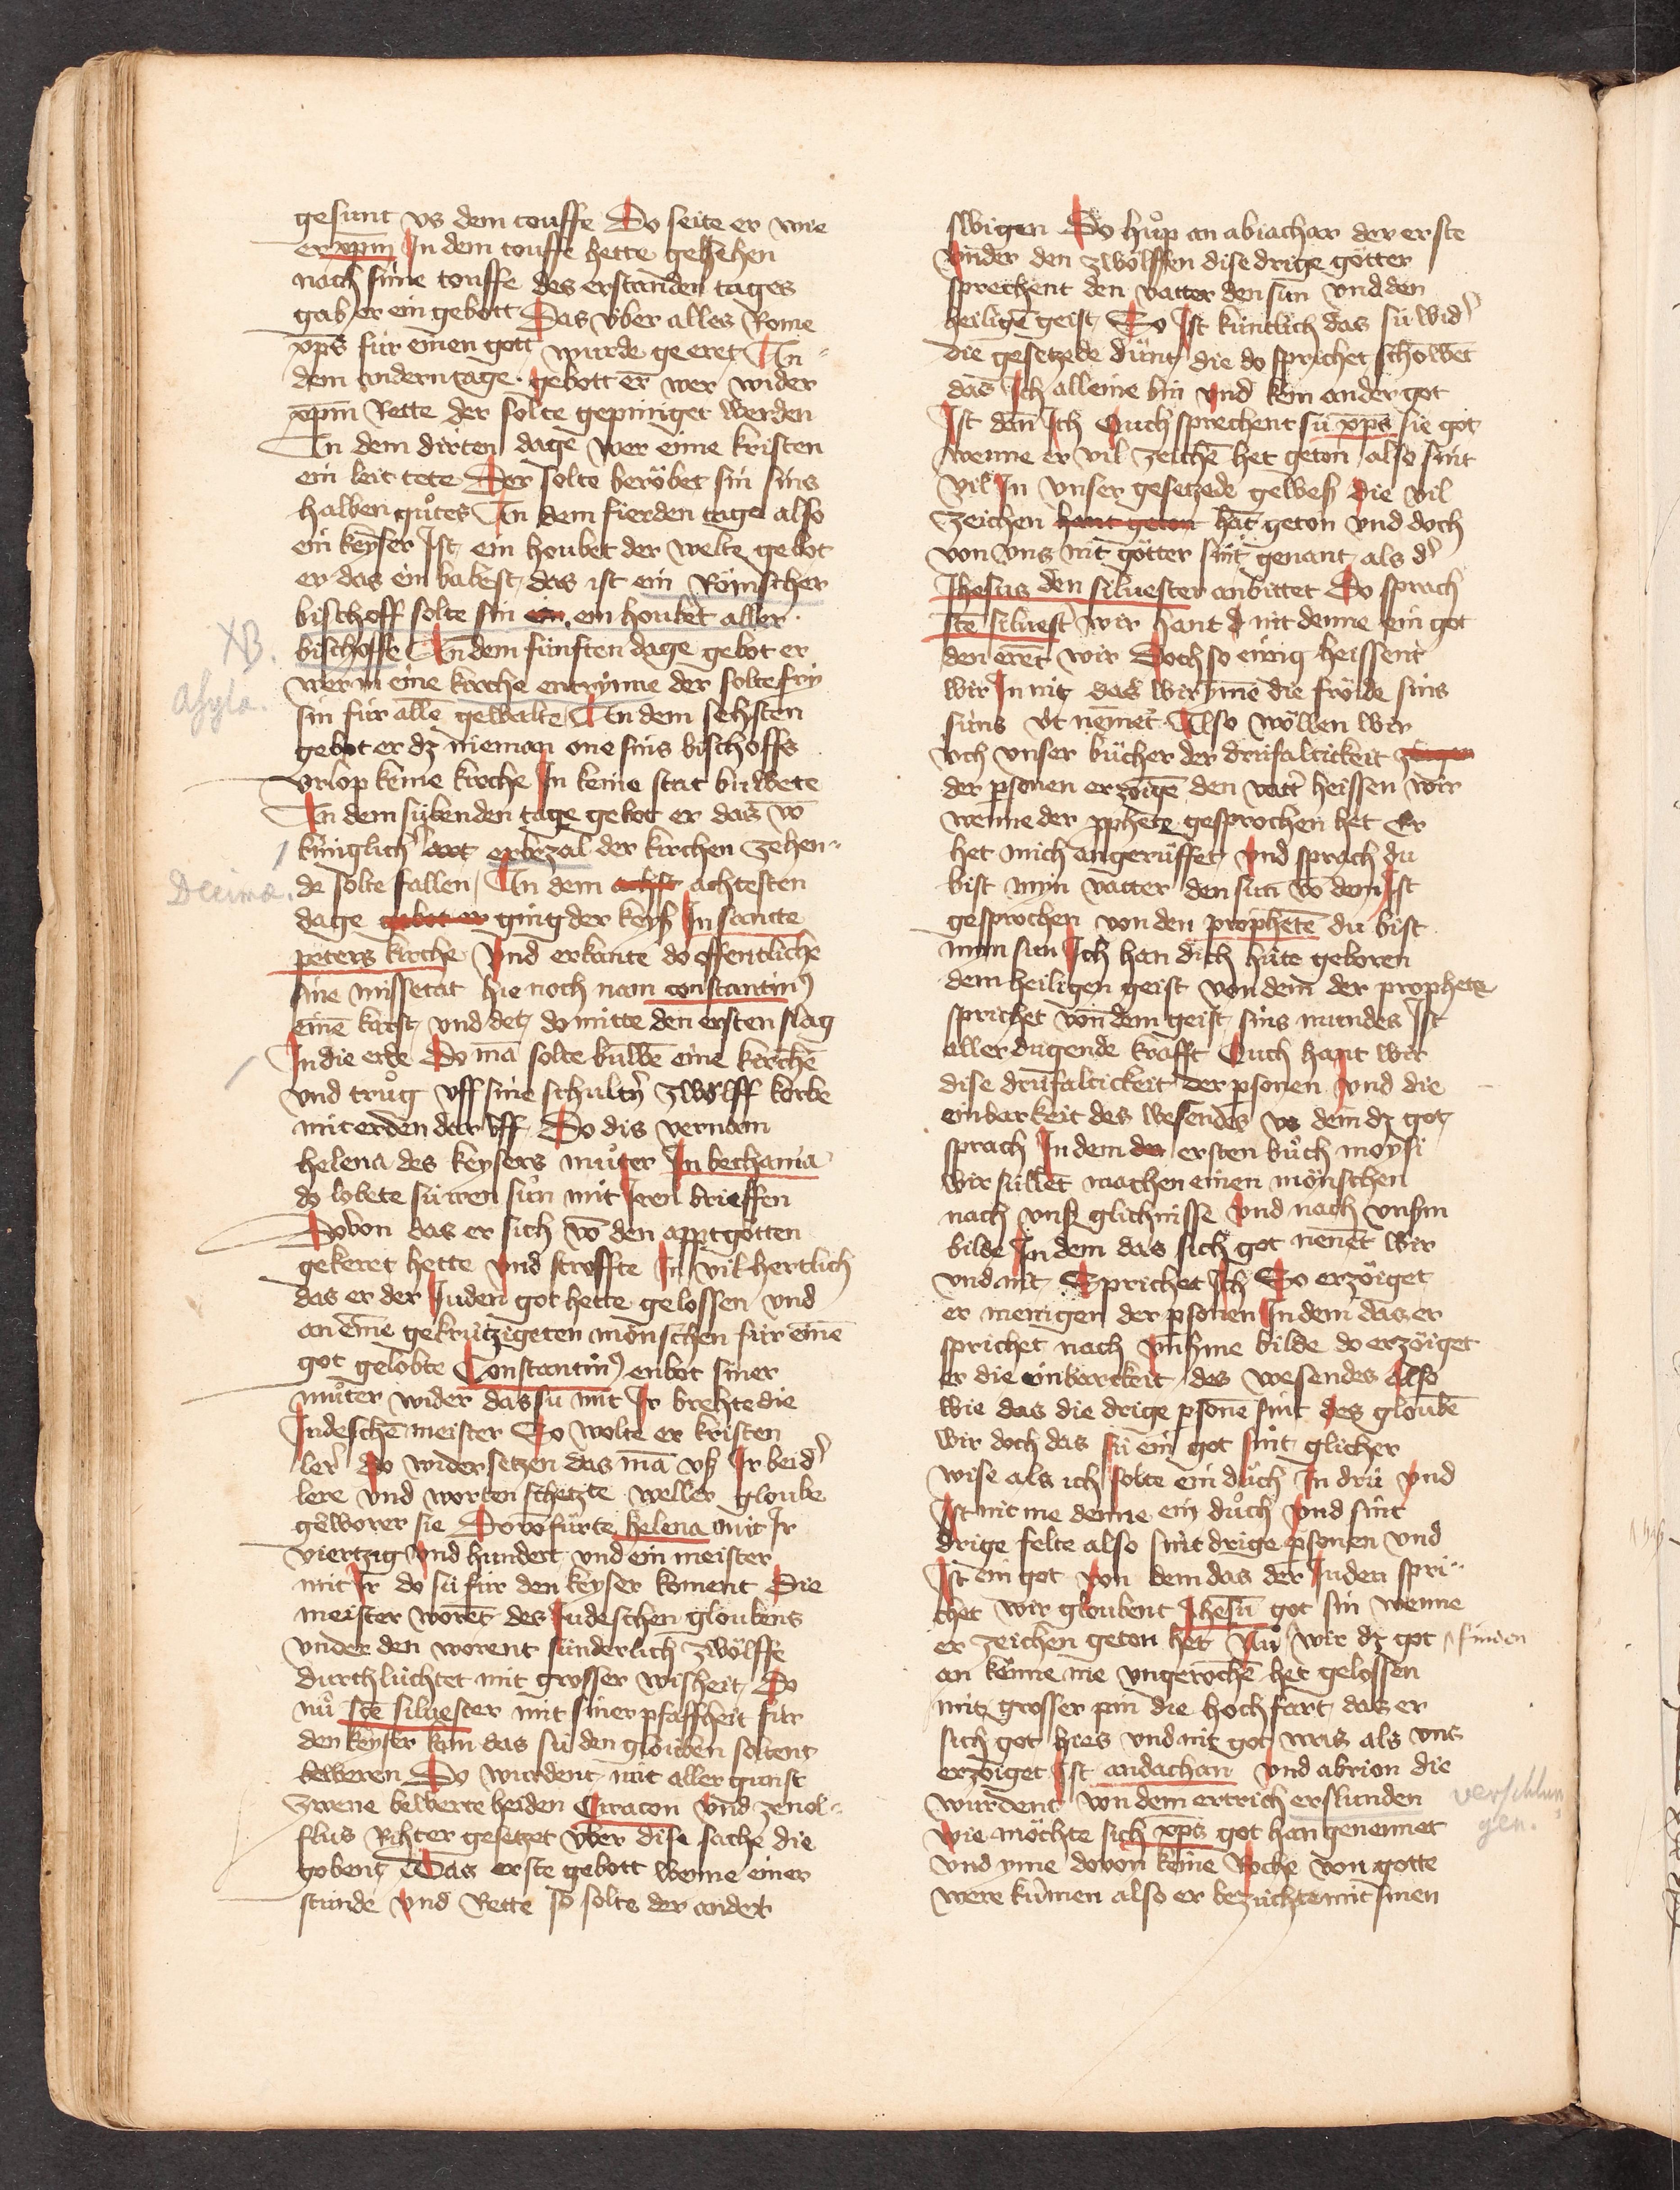 gesunt vs dem touffe Do seite er wie
er xpm In dem touffe hette gesehen
nach sime touffe des ersten tages
gab er ein gebott Das vber alles Rome
xps für einen gott wurde geeret An
dem andern tage gebott er wer wider
xpm Rette der solte gepiniget werden
An dem dirten dage wer eime kristen
ein leit tete Der solte beröbet sin sins
halben gůtes An dem fierden tage also
ein keyser Ist ein houbet der welte gebot
er das ein babest das ist ein Römscher
bischoff solte sin ein houbet aller
bischoffe An dem fünften dage gebot er
wer in eine kirche entrynne der solte fry
sin für alle gewalte An dem sehsten
gebot er dz nieman one sins bischoffs
vrlop keine kirche In keine stat buwete
An dem sübenden tage gebot er das vō
küniglich der kirchen zehen
de solte fallen An dem achtesten
dage ging der keyser In sancte
peters kirche Vnd erkante do offentliche
sine missetat hie noch nam constantin9
eine karst vnd det do mitte den ersten slag
In die erde Do mā solte buwē eine kirchē
vnd trůg vff sine schultern zwölff körbe
mit erden dar vff Do dis vernam
helena des keysers můter In bethania
do lobete sü iren sün mit Iren brieffen
Dovon das er sich vō den apptgötten
gekeret hette vnd stroffte In vil hertlich
das er der Iuden got hette gelossen vnd
an eime gekrützigeten mönschen für einē
got gelobte Constantin9 enbot siner
můter wider das sü mit Ir brehte die
Iudeschē meister So wolte er kristen
ler do wider setzen das mā vs Ir beider
lere vnd worten schetzte weller gloube
geworer sie Dovō fürte helena mit Ir
viertzig vnd hundert vnd ein meister
mit Ir do sü für den keyser koment Die
meister worēt des Iudeschen gloubens
vnder den worent sünderlich zwölffe
durchlüchtet mit grosser wisheit Do
nů scē siluester mit siner pfaffheit für
den keyser kam das sü den glouben soltent
beweren Do wurdent mit aller gunst
zwene bewerte heiden Craton Vnd zenol
filus Rihter gesetzet über dise sache die
gobent Das erste gebott wenne einer
stünde vnd Rette so solte der ander
swigen Do hůp an abiachar der erste
vnder den zwölffen dise drige götter
sprechent den vatter den sun vnd den
heiligē geist So Ist küntlich das sü wider
die gesetzede dünt die do sprichet schowēt
das Ich alleine bin vnd kein ander got
Ist dān Ich Ouch sprechent sü xps sie got
wenne er vil zeichē het geton also sint
vil In vnser gesetzede gewesen die vil
zeichen hant geton hāt geton vnd doch
von vns nit götter sint genant als der
Ihesus den siluester anbittet Do sprach
scē siluester wir hant nit denne ein got
den erēt wir Doch so einig heissent
wir In nit das wir yme die fröide sins
süns üt nemet Also wöllen wir
vch vnser bücher der drüfaltickeit
der psonen erzöigē den vatter heissen wir
wenne der pphete gesprochen het Er
het mich angerüffet vnd sprach du
bist myn vatter den sun vō dem Ist
gesprochen von den prophetē du bist
min sun Ich han dich hüte geboren
dem heiligen geist von dem der prophete
sprichet von dem geist sins mundes Ist
aller dugende krafft Ouch hant wir
dise drüfaltickeit der psonen vnd die
einbarkeit des wesendes vs dem dz got
sprach In dem ersten bůch moysi
wir süllēt machen einen mönschen
nach vnser glichnisse vnd nach vnserm
bilde In dem das sich got nenēt wir
vnd nit Sprichet Ich So erzöiget
er menigen der psonen In dem das er
sprichet nach vnserme bilde do erzöiget
er die einbarkeit des wesendes Also
wie das die drige psonē sint des gloubē
wir doch das sü ein got sint glicher
wise als ich solte ein důch In drü vnd
Ist nit me denne ein důch vnd sint
drige felte also sint drige psonen vnd
Ist ein got von dem das der Iuden spri
chet wir gloubent Ihesū got sin wenne
er zeichen geton het Nů wir dz got finden
an keime nie vngerochē het gelossen
mit grosser pin die hochfart das er
sich got hies vnd nit got was als vns
erzöiget Ist andachan vnd abrion die
wurdent von dem ertrich erslunden
wie möchte sich xps got han genennet
vnd yme dovon keine Roche von gotte
were kümen also er bezüchte mit sinen
XB.
Asyla.
Decimæ.
verschlun
gen.